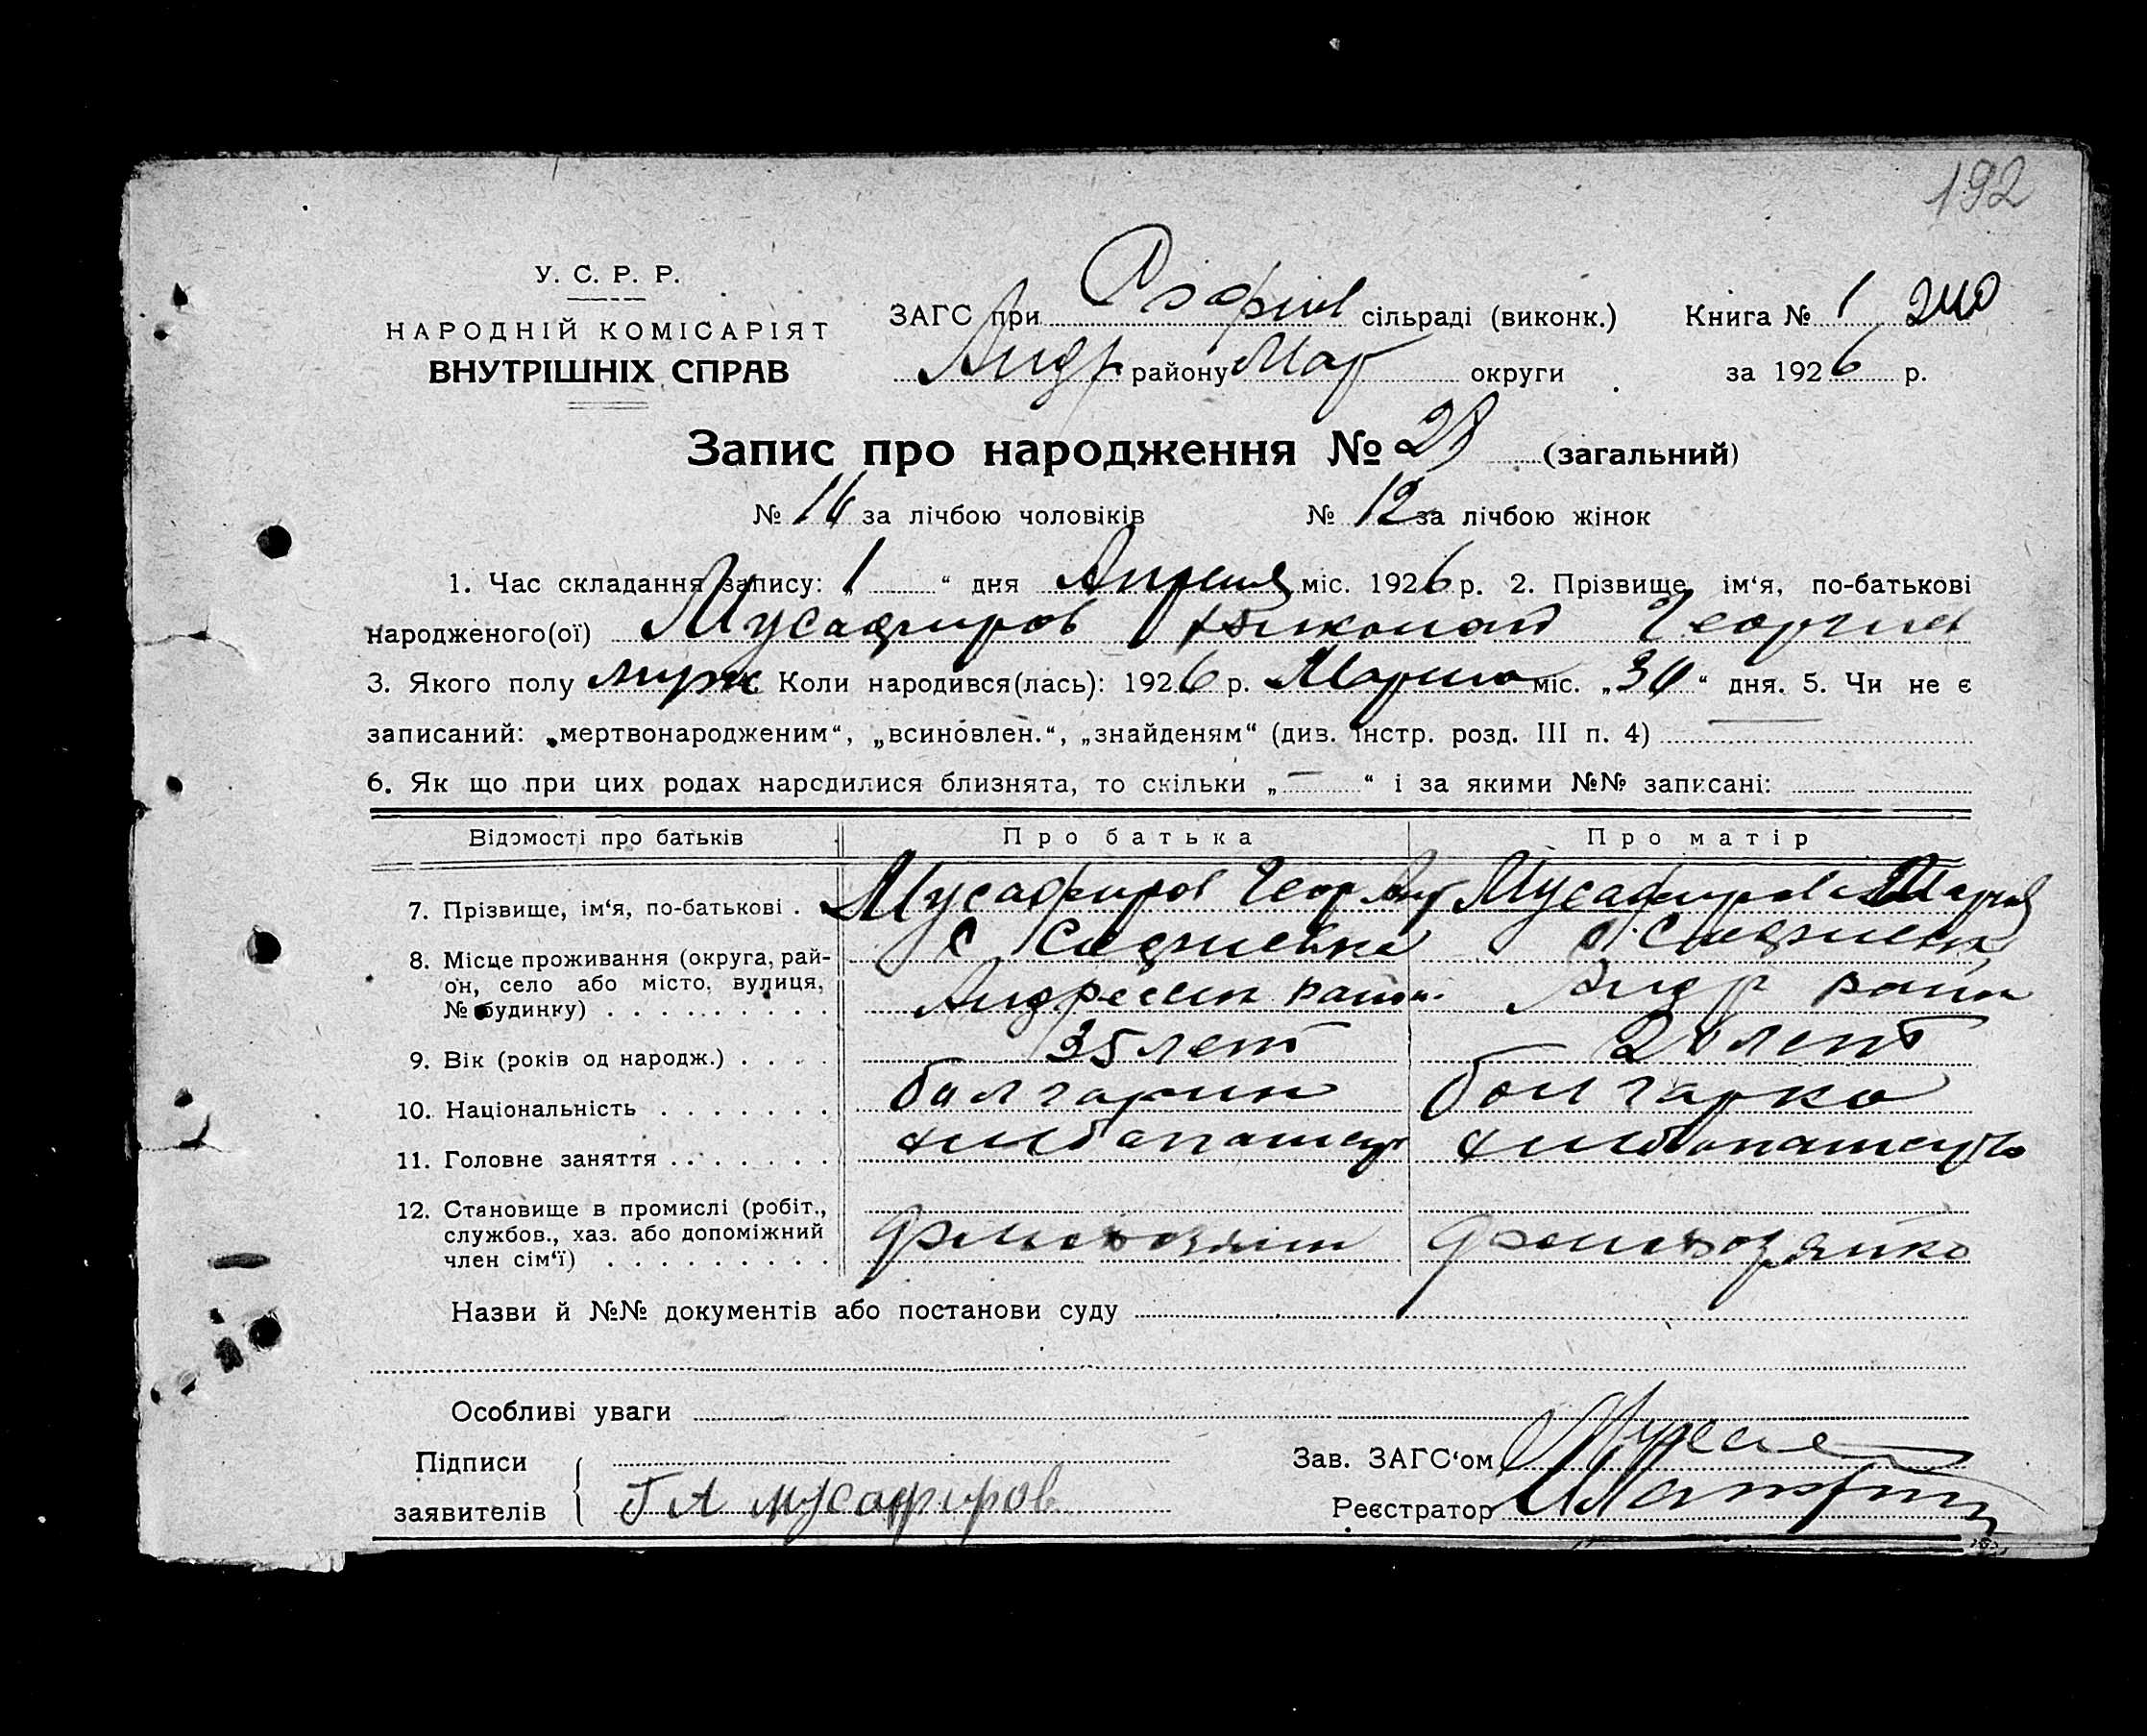 192
У. С. Р. Р.
НАРОДНІЙ КОМІСАРІЯТ
ВНУТРІШНІХ СПРАВ
ЗАГС при Софиев сільраді (виконк.) Книга № 1 240
Андр району Мар округи за 1926 р.
Запис про народження № 28 (загальний)
№ 16 за лічбою чоловіків № 12 за лічбою жінок
1. Час складання запису: „ 1 “ дня Апреля міс. 1926 р. 2. Прізвище, ім‘я, по-батькові
народженого(ої) Мусафиров Николай Георгиев
3. Якого полу муж Коли народився(лась): 1926 р. Марта міс. „30“ дня. 5. Чи не є
записаний: „мертвонародженим“, „всиновлен.“, „знайденям“ (див. інстр. розд. III п. 4)
6. Як що при цих родах народилися близнята, то скільки „ — “ і за якими №№ записані:
Відомості про батьків Про батька Про матір
7. Прізвище, ім‘я, по-батькові . Мусафиров Геор Мусафирова Мария
8. Місце проживання (округа, рай- с Софиевка с Софиевка
он, село або місто, вулиця, Андреевск район Андр район
№ будинку) . . . . . . . . .
9. Вік (років од народж.) . . . . 35 лет лет
10. Національність . . . . . . . болгарин болгарка
11. Головне заняття . . . . . . . хлебопашец
12. Становище в промислі (робіт.,
службов., хаз. або допоміжний
член сім‘ї) . . . . . . . . .
Назви й №№ документів або постанови суду
Особливі уваги
Підписи Зав. ЗАГС‘ом
заявителів Г А Мусафиров Реєстратор